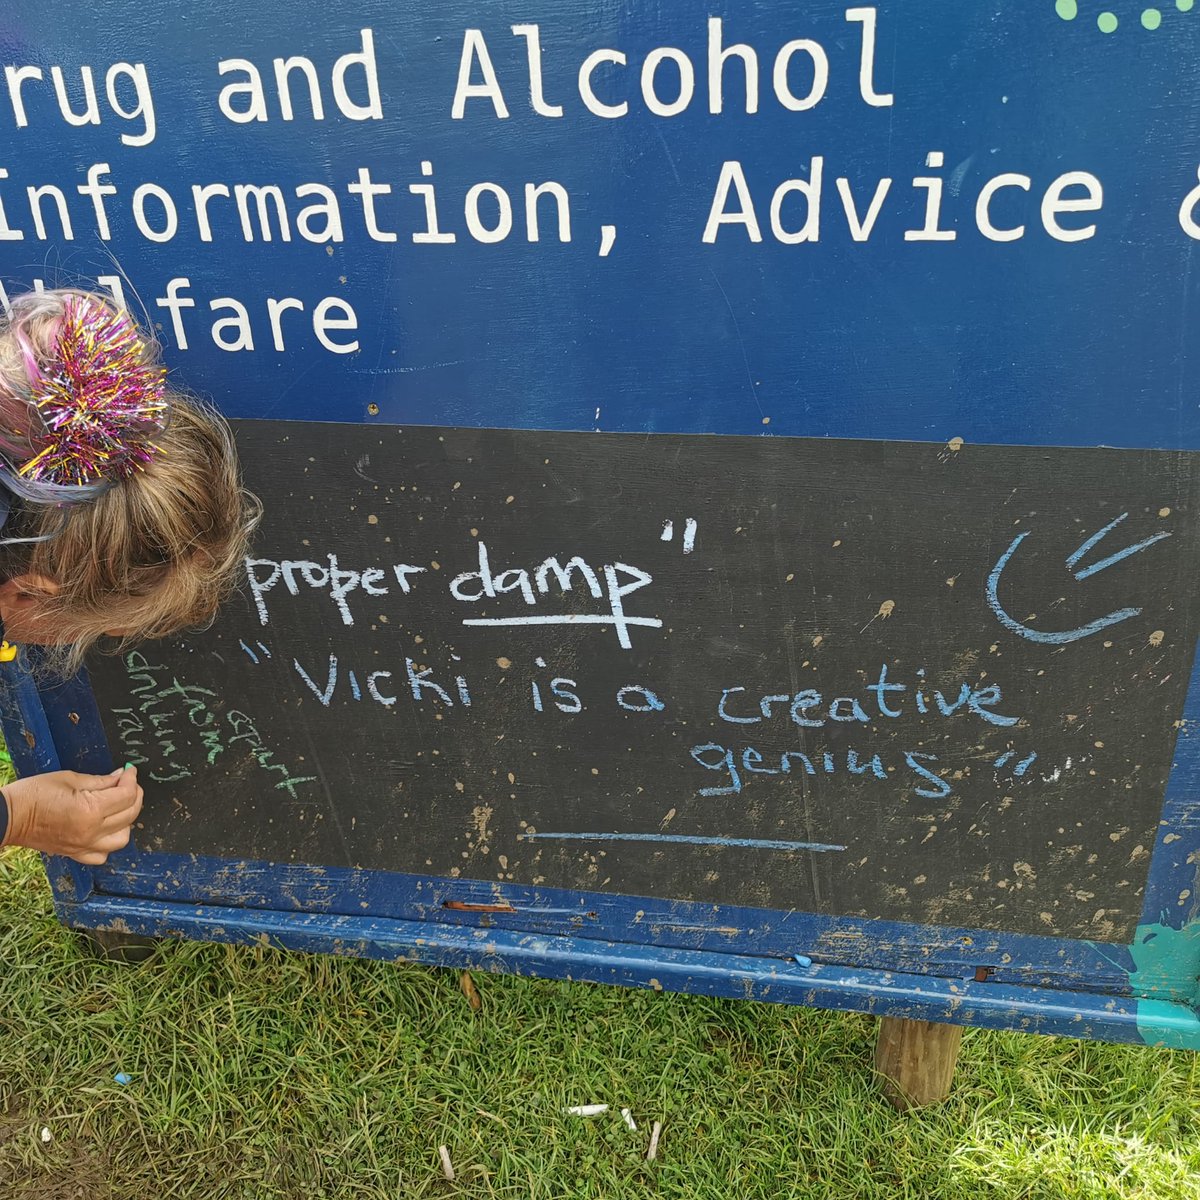 rug and Alcohol
Information, Advice &
lfare
proper damp"
"Vicki is a creative
genius"
apart
from